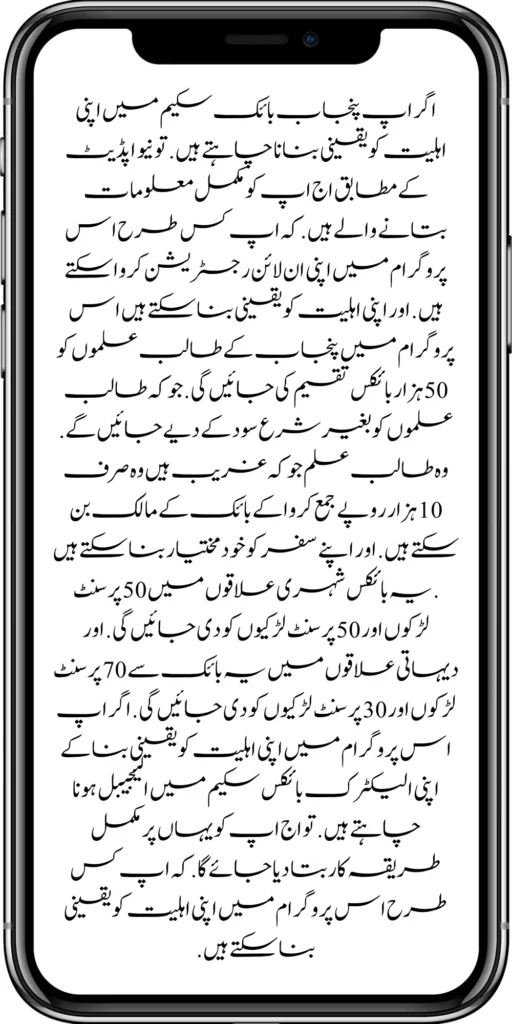 اگر اپ پنجاب بائک سکیم میں اپنی
اہلیت کو یقینی بنانا چاہتے ہیں. تو نیو اپڈیٹ
کے مطابق اج اپ کو مکمل معلومات
بتانے والے ہیں. کہ اپ کس طرح اس
پروگرام میں اپنی ان لائن رجسٹریشن کروا سکتے
ہیں. اور اپنی اہلیت کو یقینی بنا سکتے ہیں اس
پروگرام میں پنجاب کے طالب علموں کو
50 ہزار بائکس تقسیم کی جائیں گی. جو کہ طالب
علموں کو بغیر شرع سود کے دیے جائیں گے.
وہ طالب علم جو کہ غریب ہیں وہ صرف
10 ہزار روپے جمع کروا کے بائک کے مالک بن
سکتے ہیں. اور اپنے سفر کو خود مختیار بنا سکتے ہیں
. یہ بائکس شہری علاقوں میں 50 پرسنٹ
لڑکوں اور 50 پرسنٹ لڑکیوں کو دی جائیں گی. اور
دیہاتی علاقوں میں یہ بائک سے 70 پرسنٹ
لڑکوں اور 30 پرسنٹ لڑکیوں کو دی جائیں گی. اگر اپ
اس پروگرام میں اپنی اہلیت کو یقینی بنا کے
اپنی الیکٹرک بائکس سکیم میں ایلیجیبل ہونا
چاہتے ہیں. تو اج اپ کو یہاں پر مکمل
طریقہ کار بتا دیا جائے گا. کہ اپ کس
طرح اس پروگرام میں اپنی اہلیت کو یقینی
بنا سکتے ہیں.